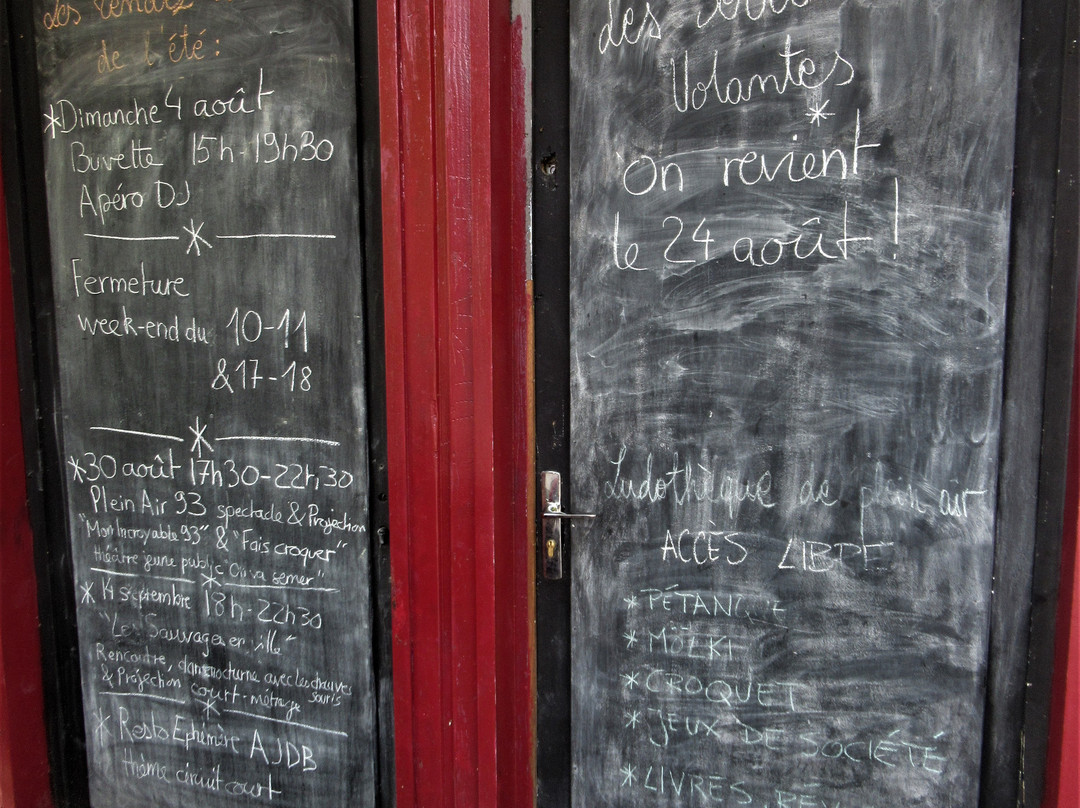 de l'été :
*Dimanche 4 août
Buvette 15h-19h30
Apéro DJ
*
Fermeture
week-end du 10-11
&17-18
*
*30 août 17h30-22h30
Plein Air 93 spectacle & Projection
"Mon Incroyable 93" & "Fais croquer"
théâtre jeune public "On va semer"
*
* 14 septembre 18h-22h30
"Les Sauvages en ville"
Rencontre, nocturne avec les chauves
souris
& Projection court-métrage
*
* Resto Ephémère AJDB
thème circuit court
des
Volantes
*
On revient
le 24 août !
Ludothèque de plein air
ACCÈS LIBRE
*PÉTANQUE
*MÖLKI
*CROQUET
*JEUX DE SOCIÉTÉ
*LIVRES,